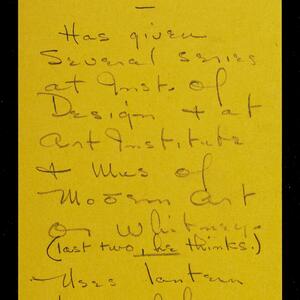 Has given
several series
at Inst. of
Design + at
Art Institute
+ Mus of
Modern Art
or Whitney.
(last two, he thinks.)
Uses lantern